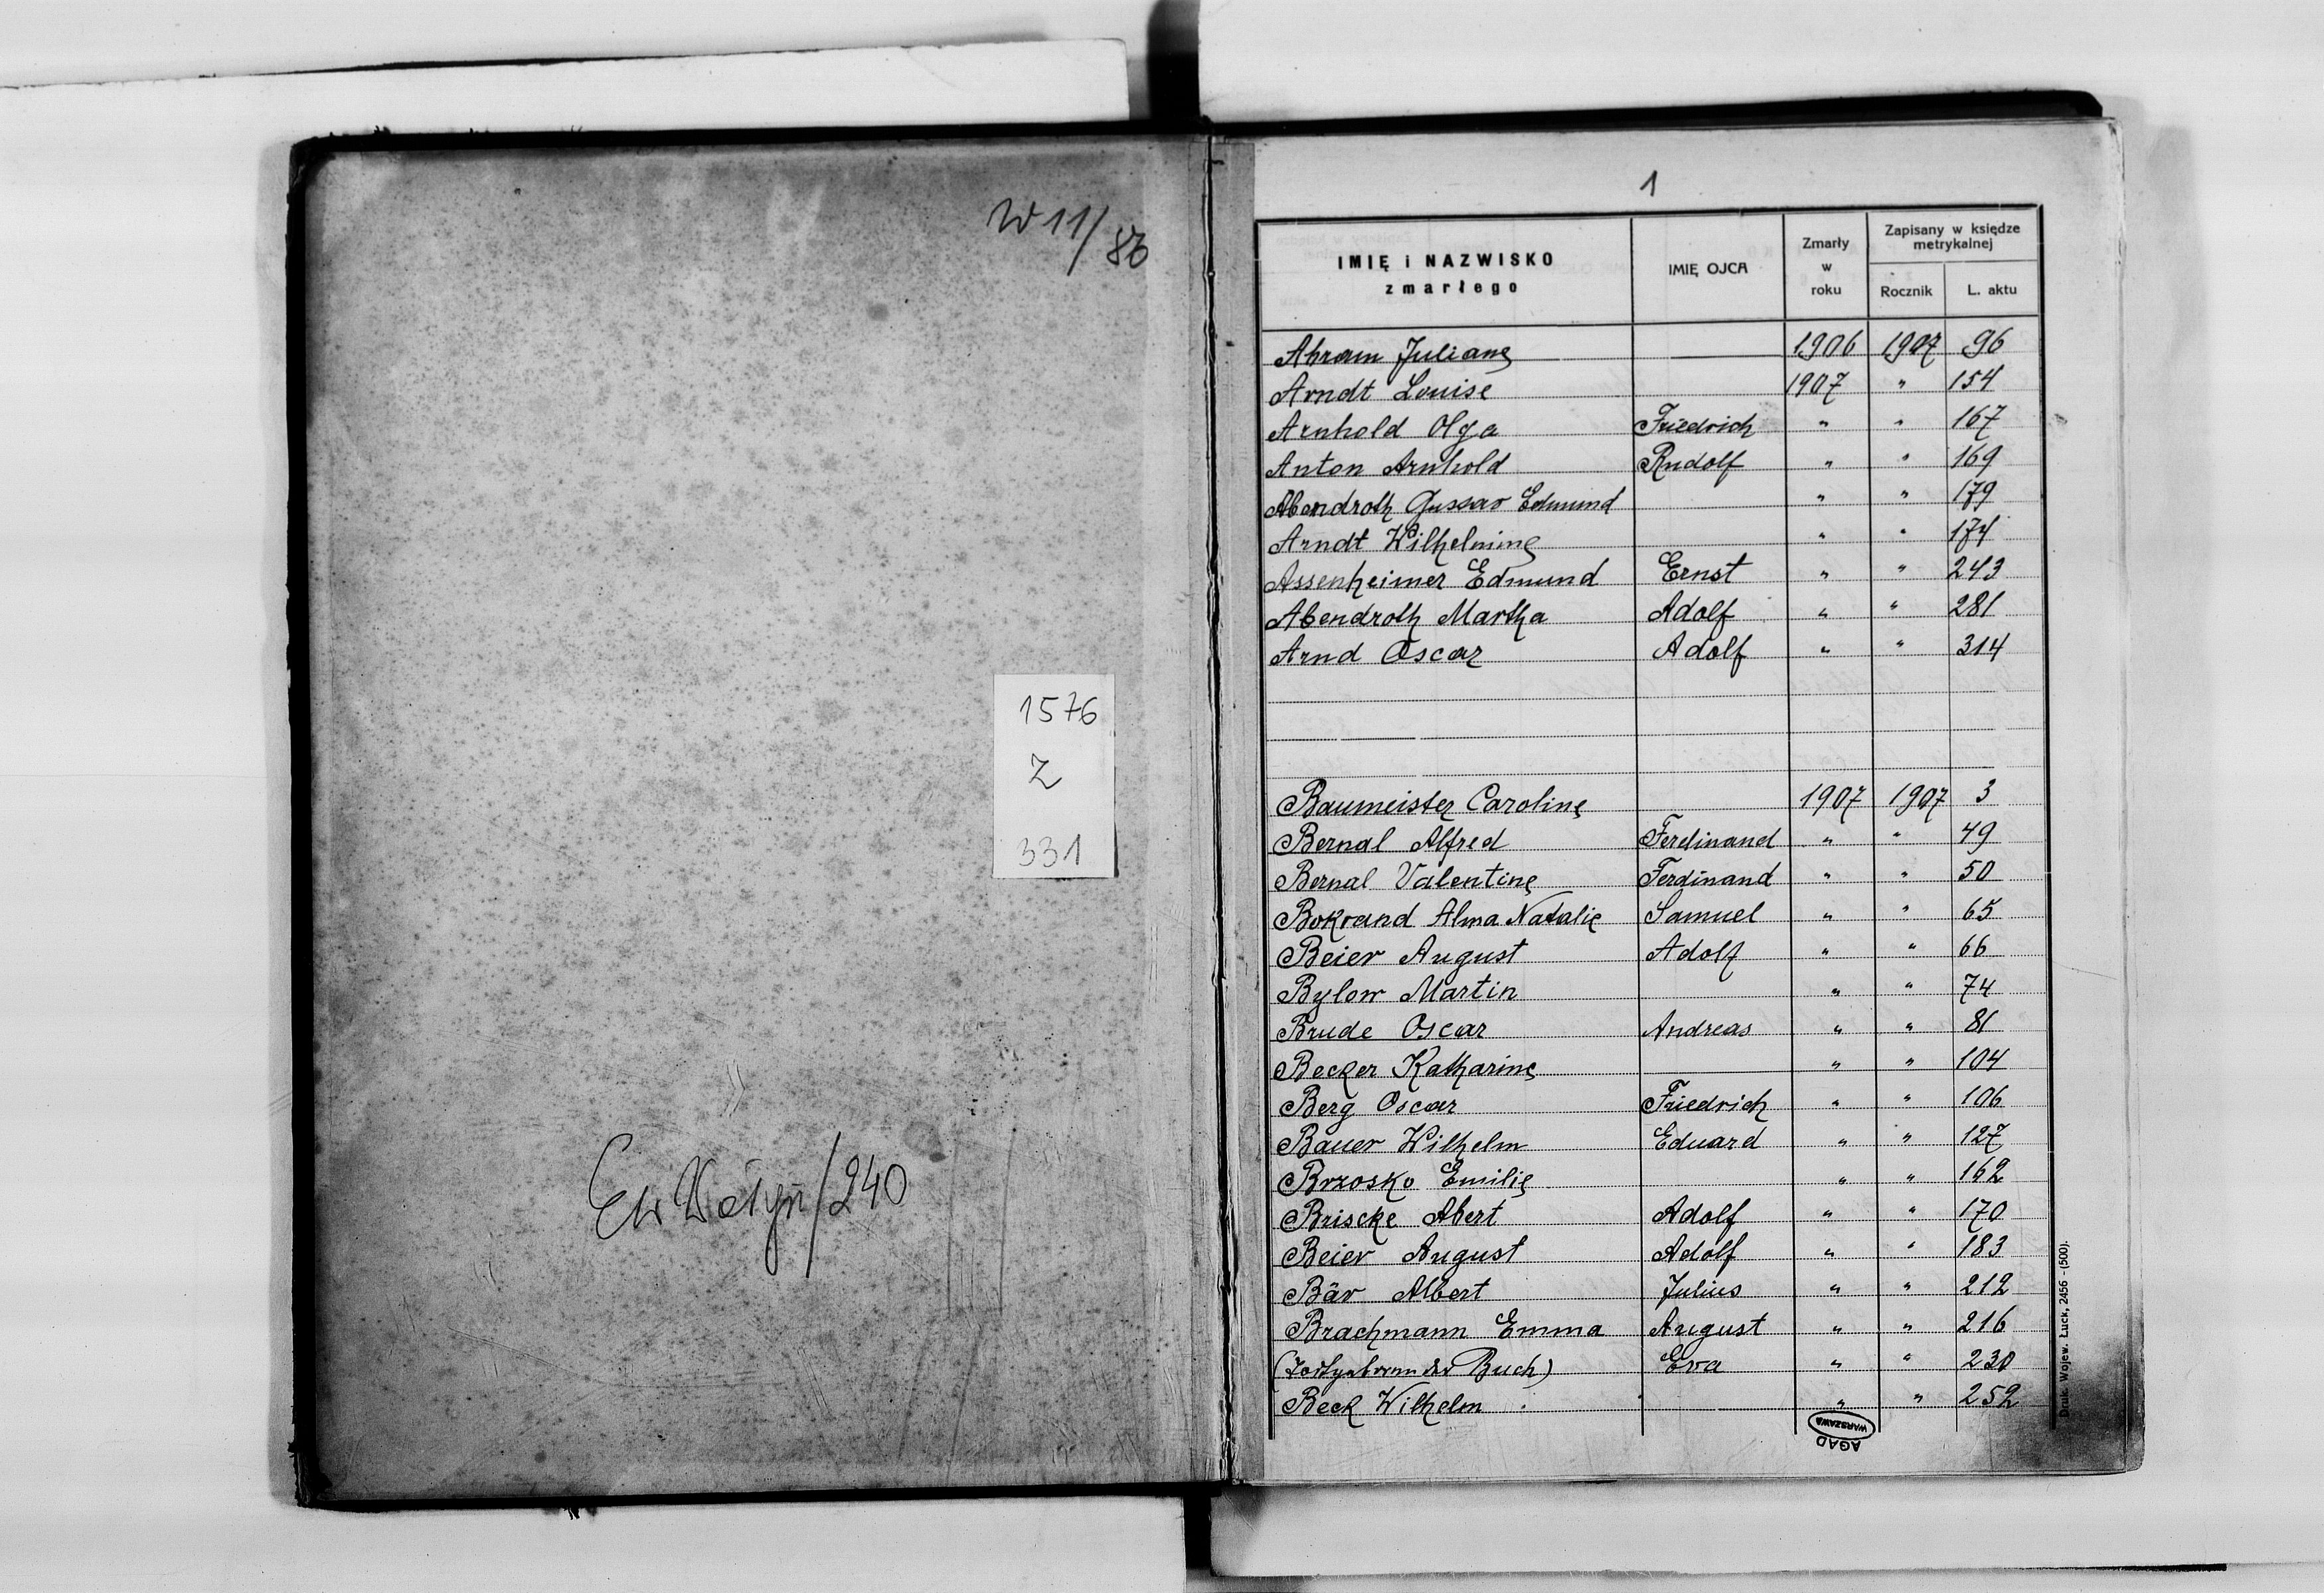 W 11/86
1576
Z
331
Ew Wołyń/240
1
IMIĘ i NAZWISKO
zmarłego
IMIĘ OJCA
Zmarły
w
roku
Zapisany w księdze
metrykalnej
Rocznik
L. aktu
Abram Juliane 1906 1907 96
Arndt Louise 1907 " 154
Arnhold Olga Friedrich " " 167
Anton Arnhold Rudolf " " 169
Abendroth Gustav Edmund " " 179
Arndt Wilhelmine " " 174
Assenheimer Edmund Ernst " " 243
Abendroth Martha Adolf " " 281
Arnd Oscar Adolf " " 314
Baumeister Caroline 1907 1907 3
Bernal Alfred Ferdinand " " 49
Bernal Valentine Ferdinand " " 50
Bokrand Alma Natalie Samuel " " 65
Beier August Adolf " " 66
Bylow Martin " " 74
Brude Oscar Andreas " " 81
Becker Katharine " " 104
Berg Oscar Friedrich " " 106
Bauer Wilhelm Eduard " " 127
Brzosko Emilie " " 162
Briscke Abert Adolf " " 170
Beier August Adolf " " 183
Bär Albert Julius " " 212
Brachmann Emma August " " 216
Buch) Eva " " 230
Beck Wilhelm " " 252
AGAD
WARSZAWA
Druk. Wojew. Łuck, 2456 - (500).